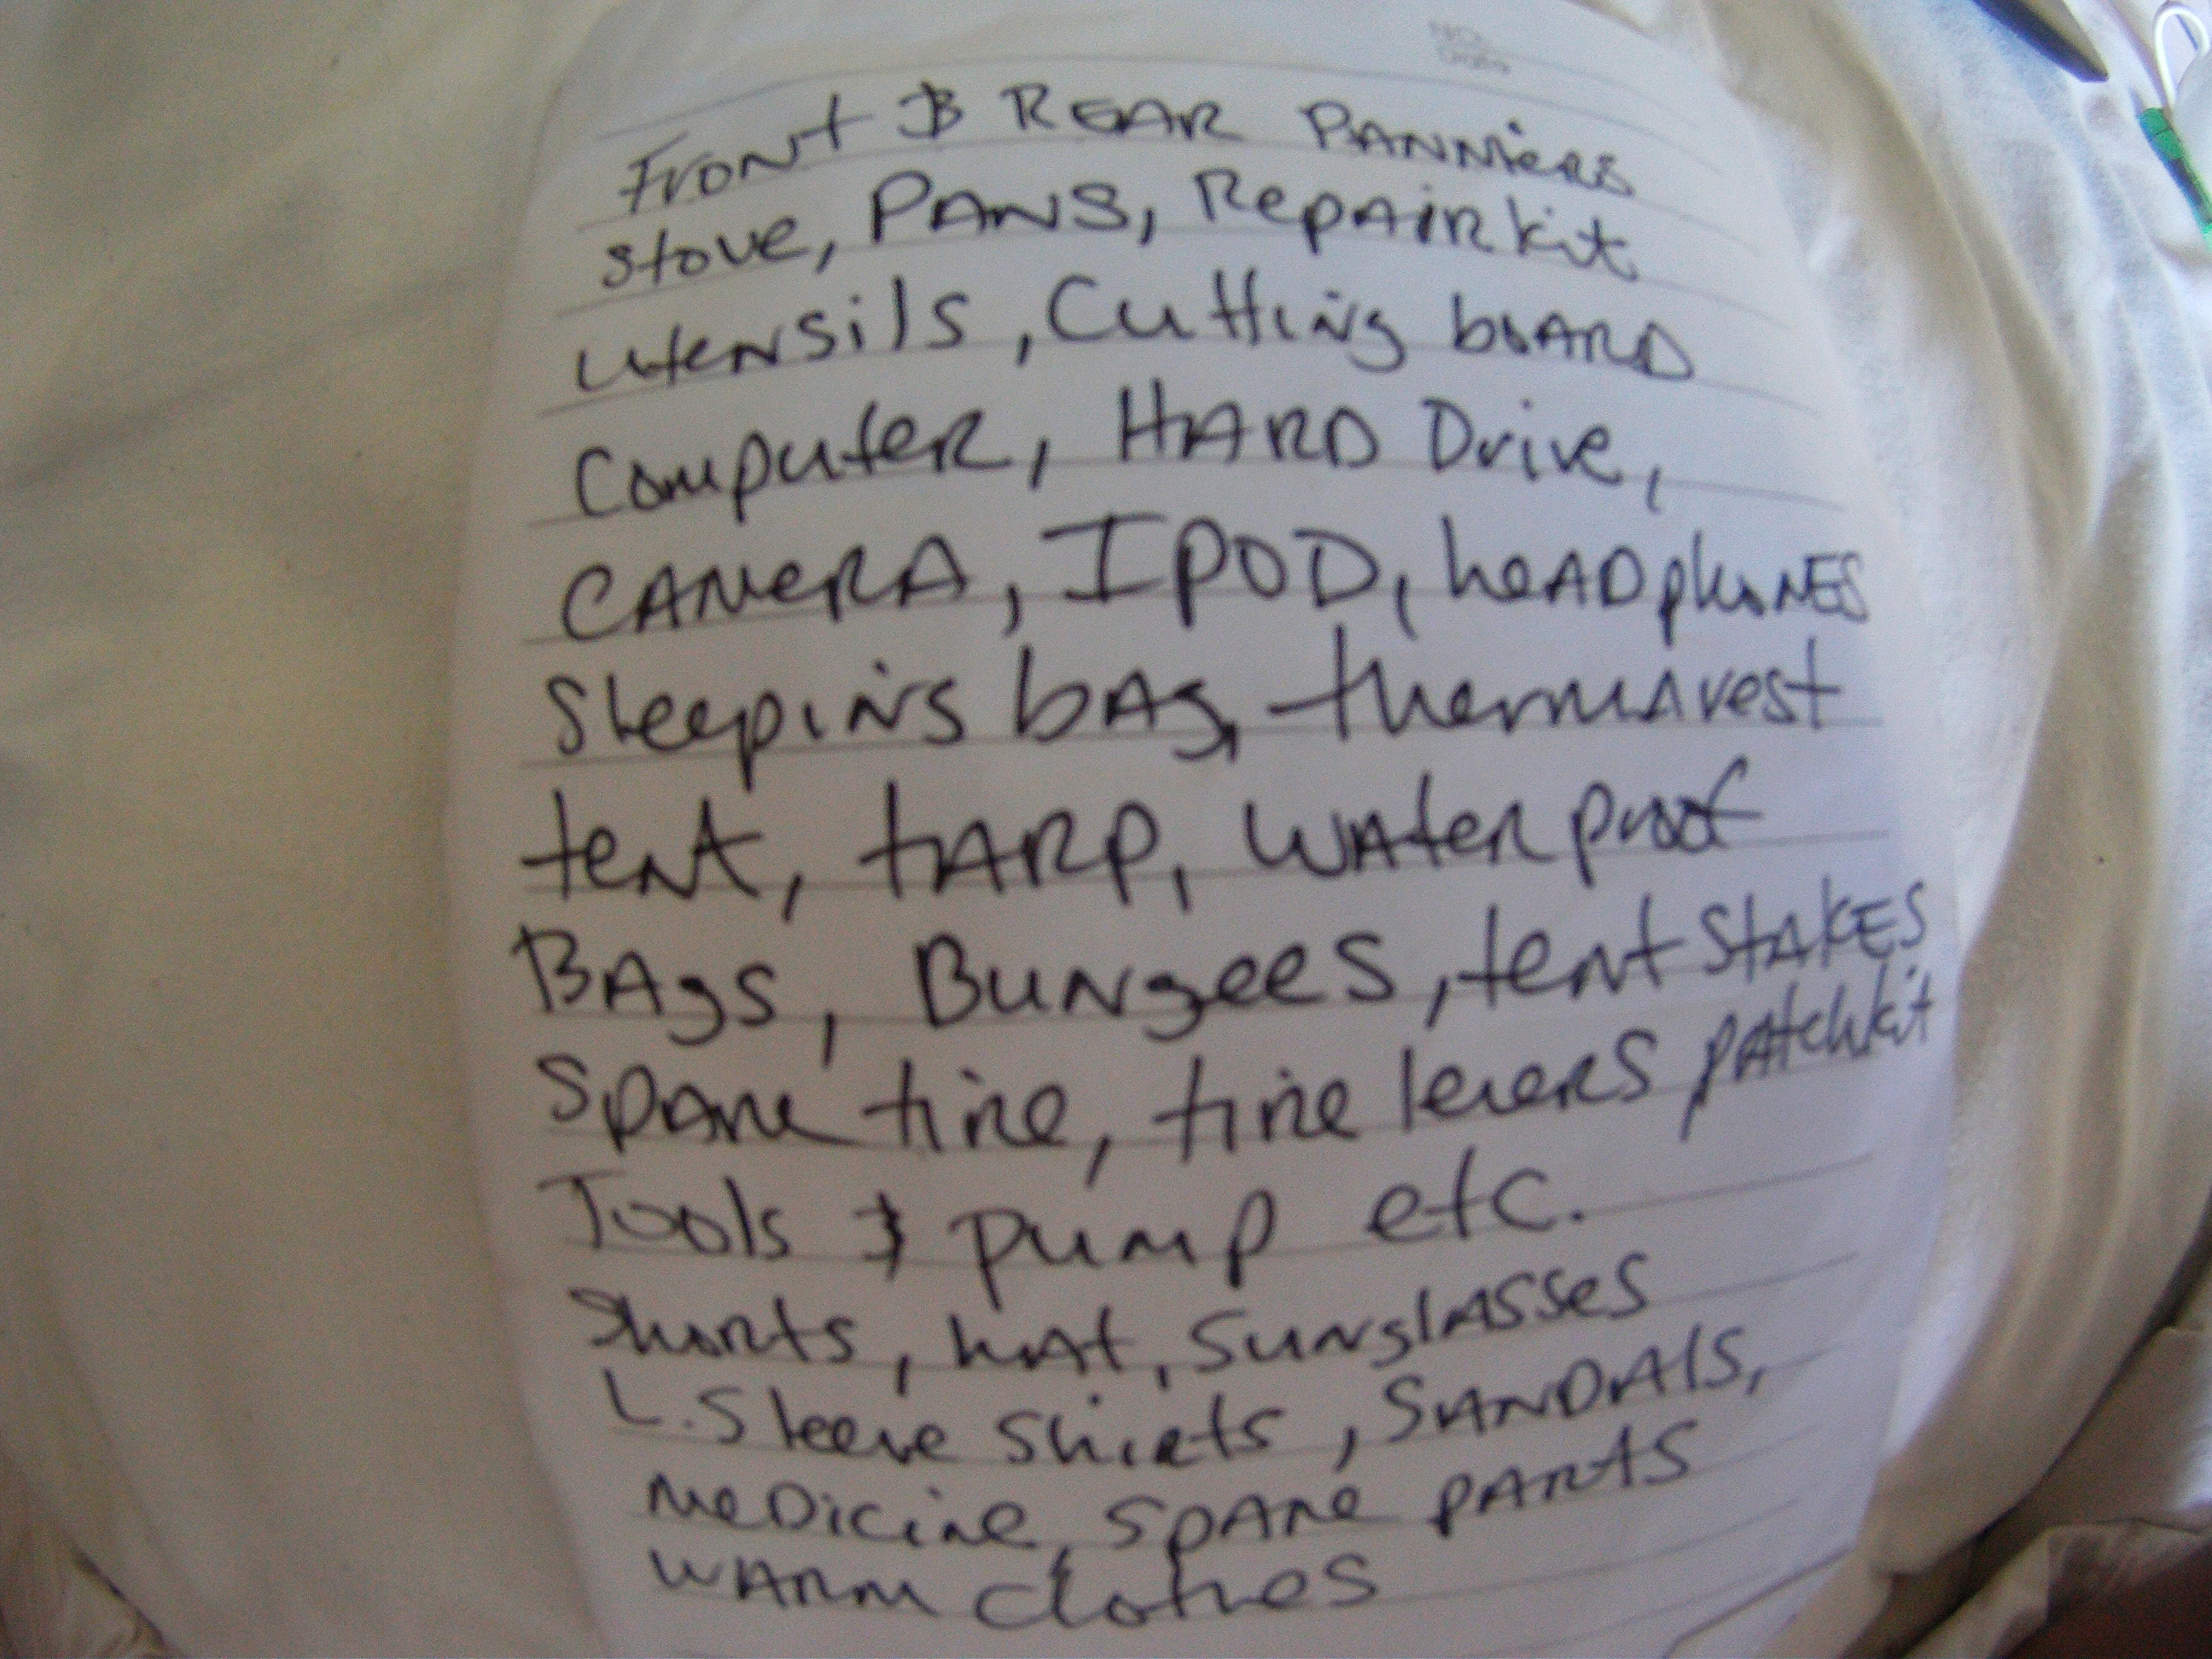 Front & REAR PANNiERS
stove, PANS, RepAir kit
utensils, Cutting boARD
Computer, HARD Drive,
CAMeRA, IPOD, heADphoNES
Sleeping bAg, thermarest
tent, tARP, WAterproof
BAgs, BUNgeeS, tent StAKES
SpAre tire, tire levers pAtchkit
Tools & pump etc.
Shorts, hAt, SUNglASSeS
L. Sleeve Shirts, SANDAlS,
MeDicine, SpAre pARtS
WARM clothes